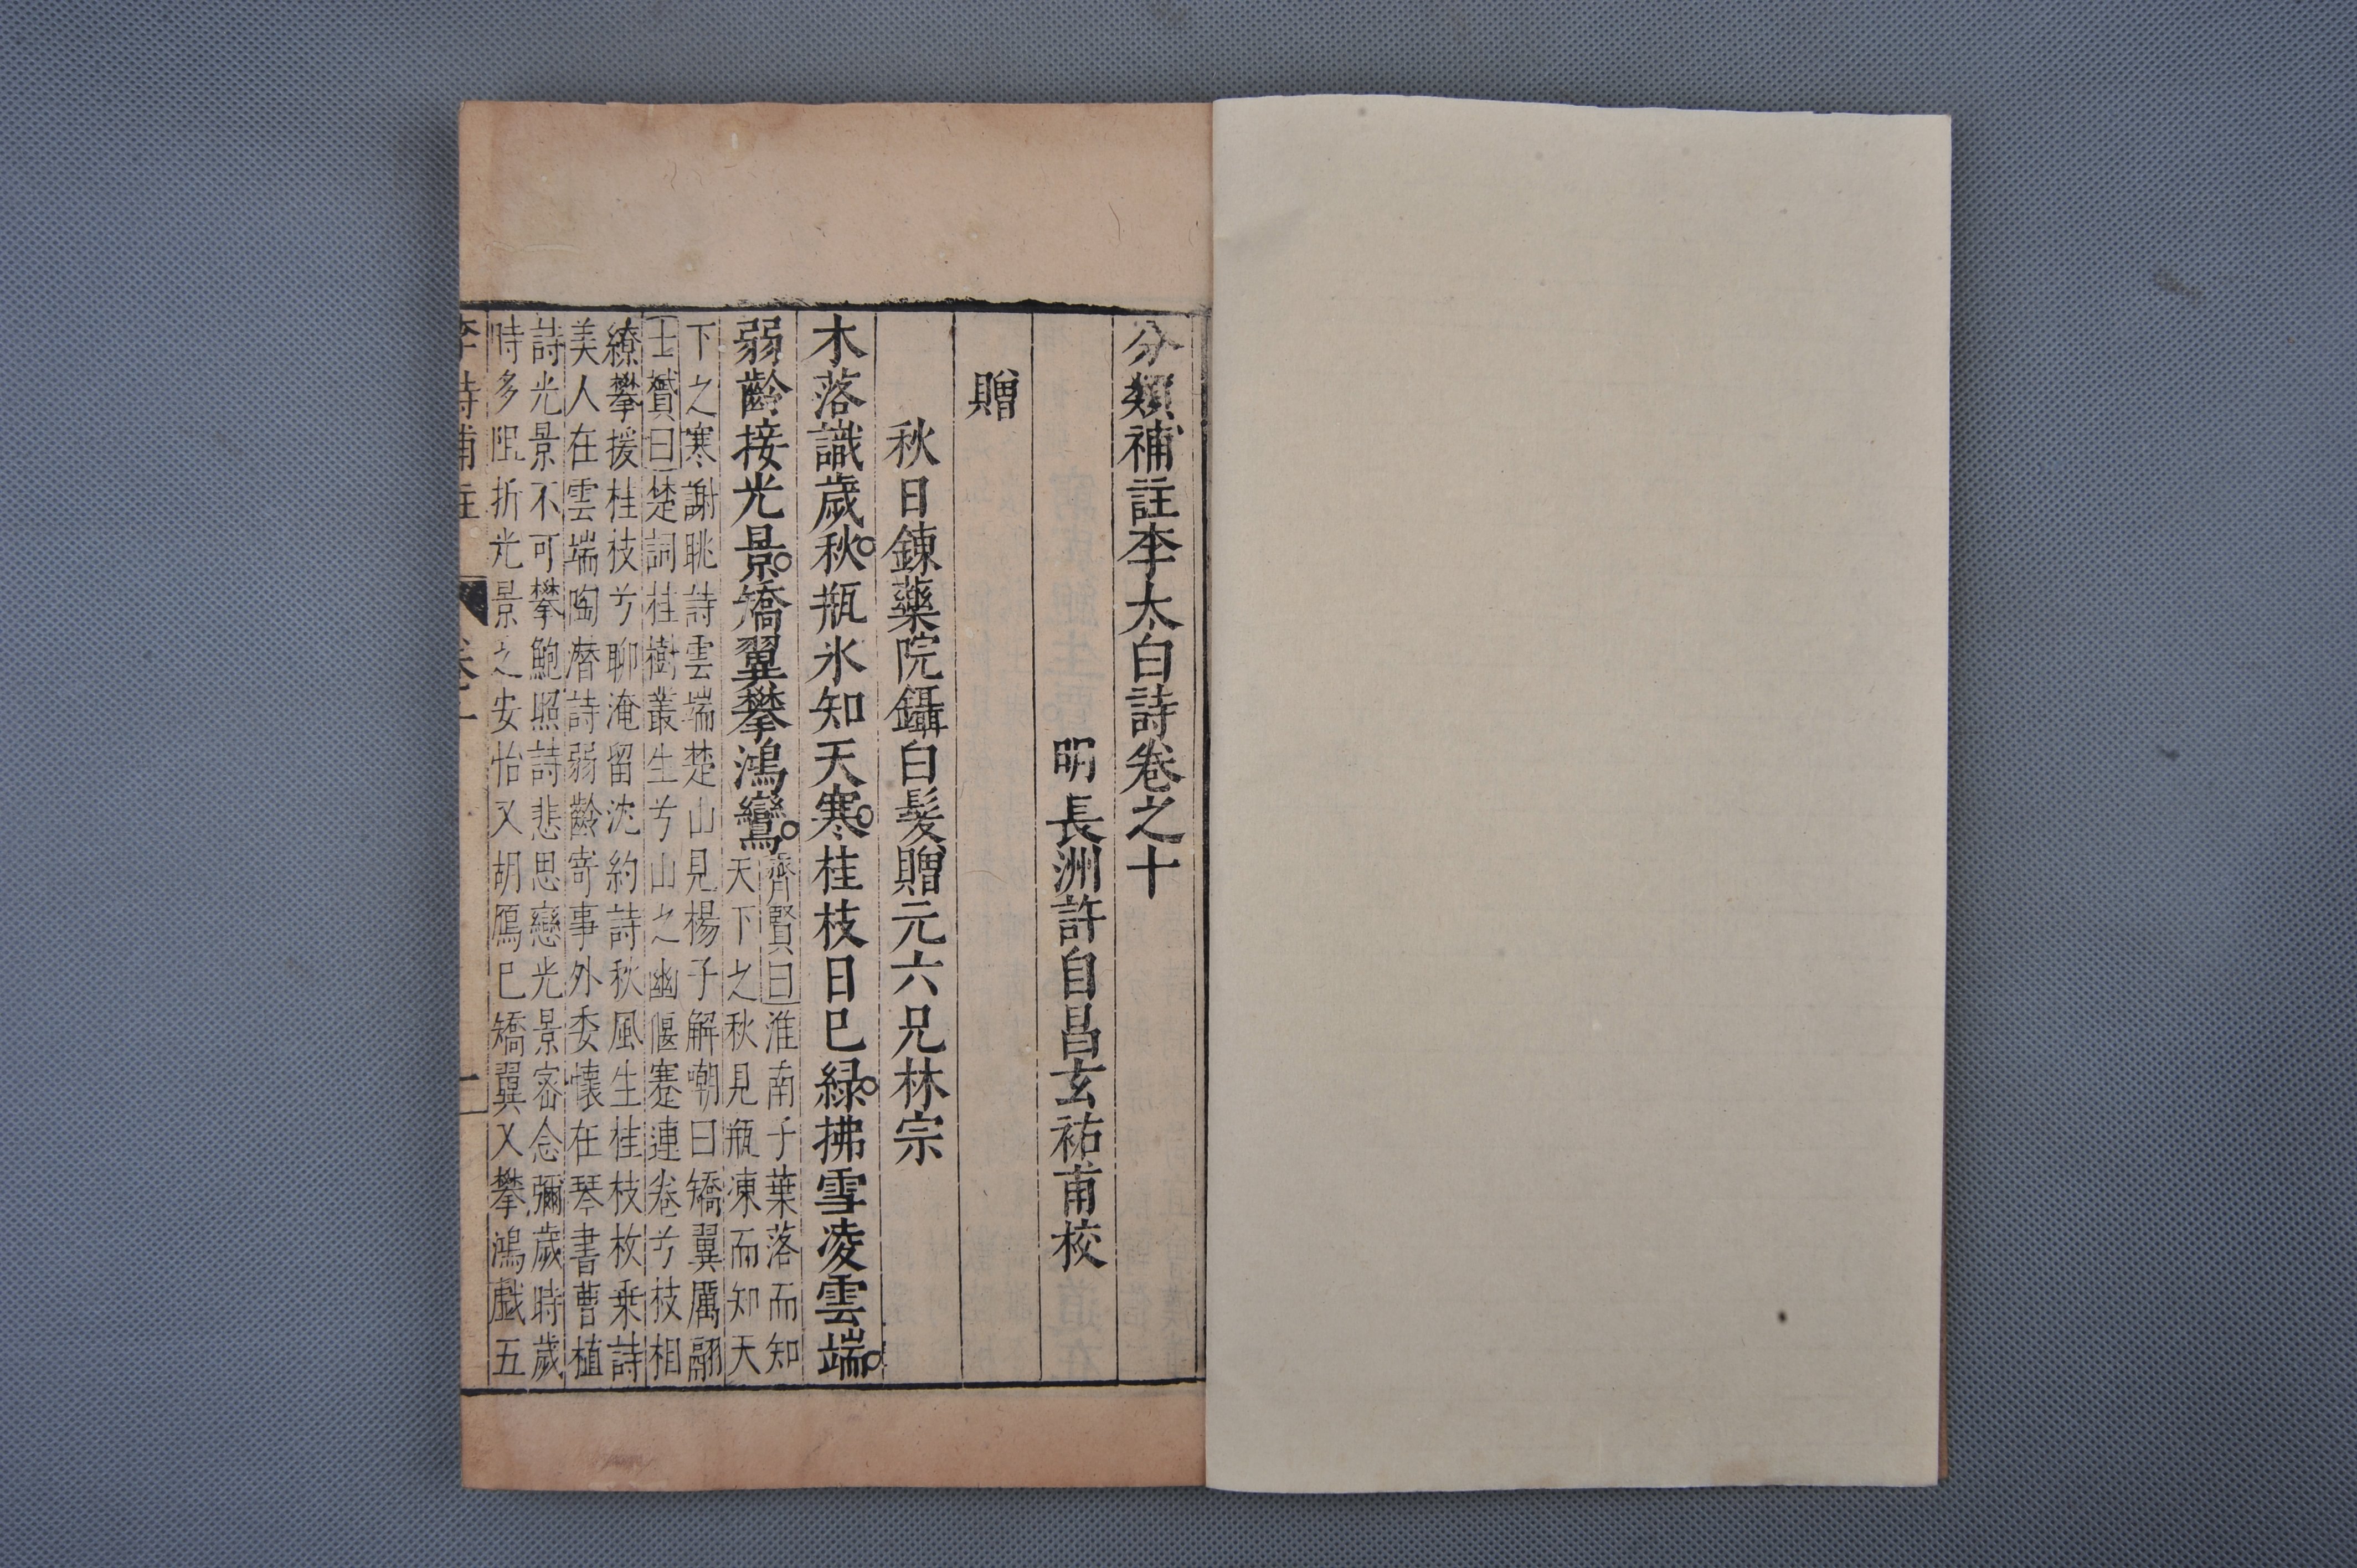 分類補註李太白詩卷之十
明長洲許自昌玄祐甫校
贈
秋日鍊藥院鑷白髮贈元六兄林宗
木落識歲秋。瓶氷知天寒。桂枝日已綠。拂雪凌雲端。
弱齡接光景。矯翼攀鴻鸞。
齊賢曰淮南子葉落而知
天下之秋見瓶凍而知天
下之寒謝眺詩雲端楚山見楊子解嘲曰矯翼厲翮
士贇曰楚詞桂樹叢生兮山之幽偃蹇連卷兮枝相
繚攀援桂枝兮聊淹留沈約詩秋風生桂枝枚乗詩
美人在雲端陶潛詩弱齡寄事外委懷在琴書曹植
詩光景不可攀鮑照詩悲思戀光景宻念彌歲時歲
時多阻折光景之安怡又胡鴈已矯翼又攀鴻戯五
李詩補註 卷十 一